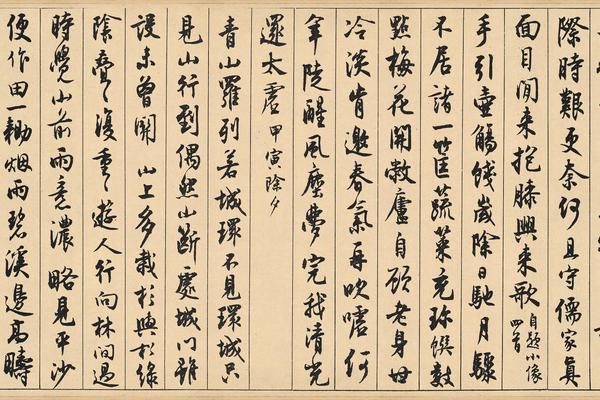 際時艱更奈何且守儒家真
面目閒來抱膝興來歌自題小像四首
手引壺觴餞歲除日馳月驟
不居諸一筐蔬菜充珍饌數
點梅花開敝廬自顧老身世
冷淡肯邀春氣再吹噓何
年陡醒風塵夢完我清光
還太虛甲寅除夕
青山羅列若城環不見環城只
見山行到偶然山斷處城門雖
設未曾關山上多栽杉與松綠
陰疊疊復重重遊人行向林間過
時覺山前雨意濃略見平沙
便作田一鋤烟雨碧溪邊高疇